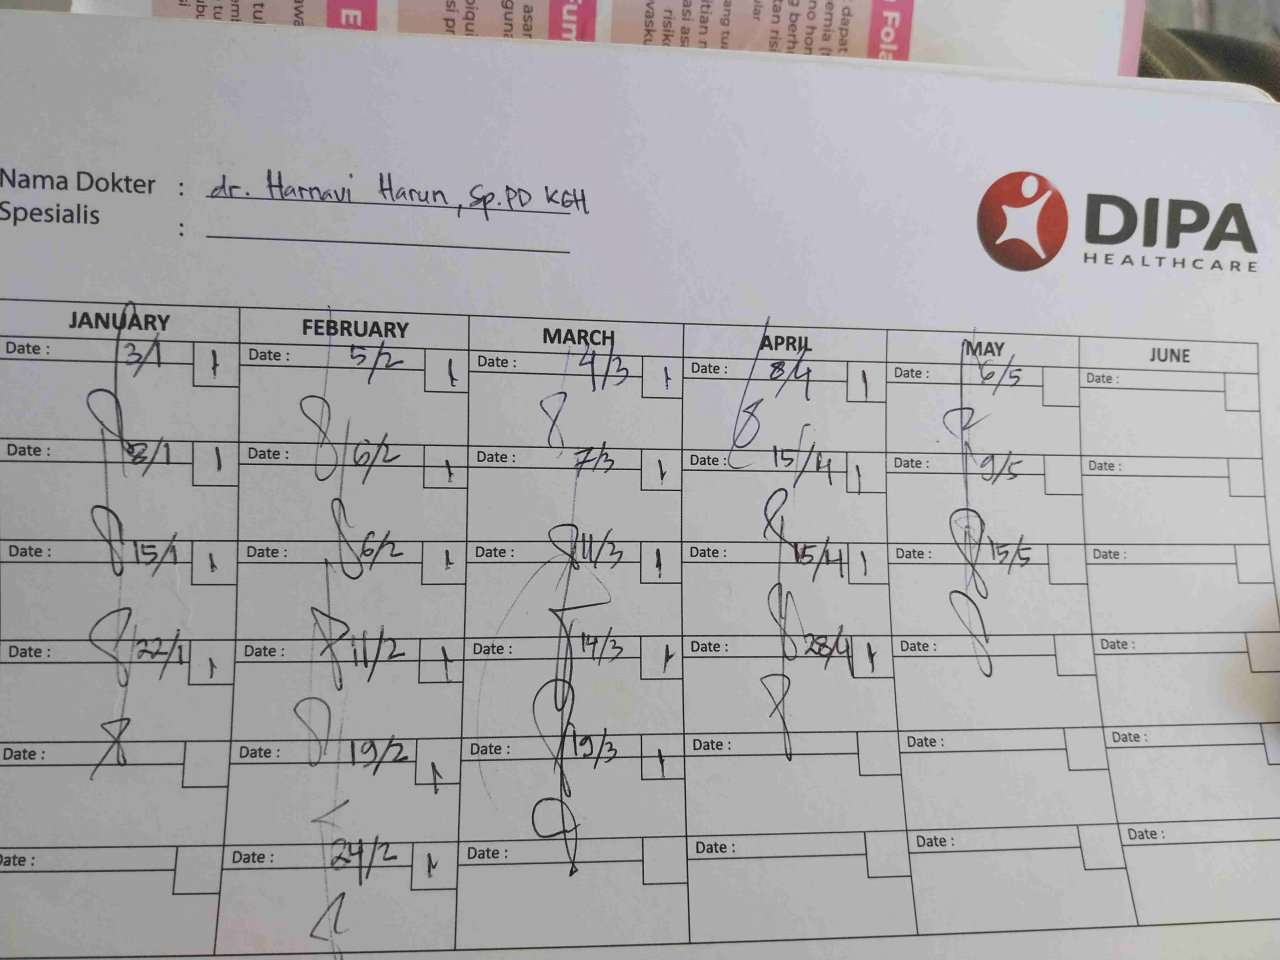 Nama Dokter : dr. Harnavi Harun, Sp.PD KGH
Spesialis :
DIPA
HEALTHCARE
JANUARY FEBRUARY MARCH APRIL MAY JUNE
Date : 3/1 1 Date : 5/2 1 Date : 4/3 1 Date : 8/4 1 Date : 6/5 Date :
Date : 8/1 1 Date : 6/2 1 Date : 7/3 1 Date : 15/4 1 Date : 9/5 Date :
Date : 15/1 1 Date : 6/2 1 Date : 11/3 1 Date : 15/4 1 Date : 15/5 Date :
Date : 22/1 1 Date : 11/2 1 Date : 14/3 1 Date : 28/4 1 Date : Date :
Date : Date : 19/2 1 Date : 19/3 1 Date : Date : Date :
Date : Date : 24/2 1 Date : Date : Date : Date :